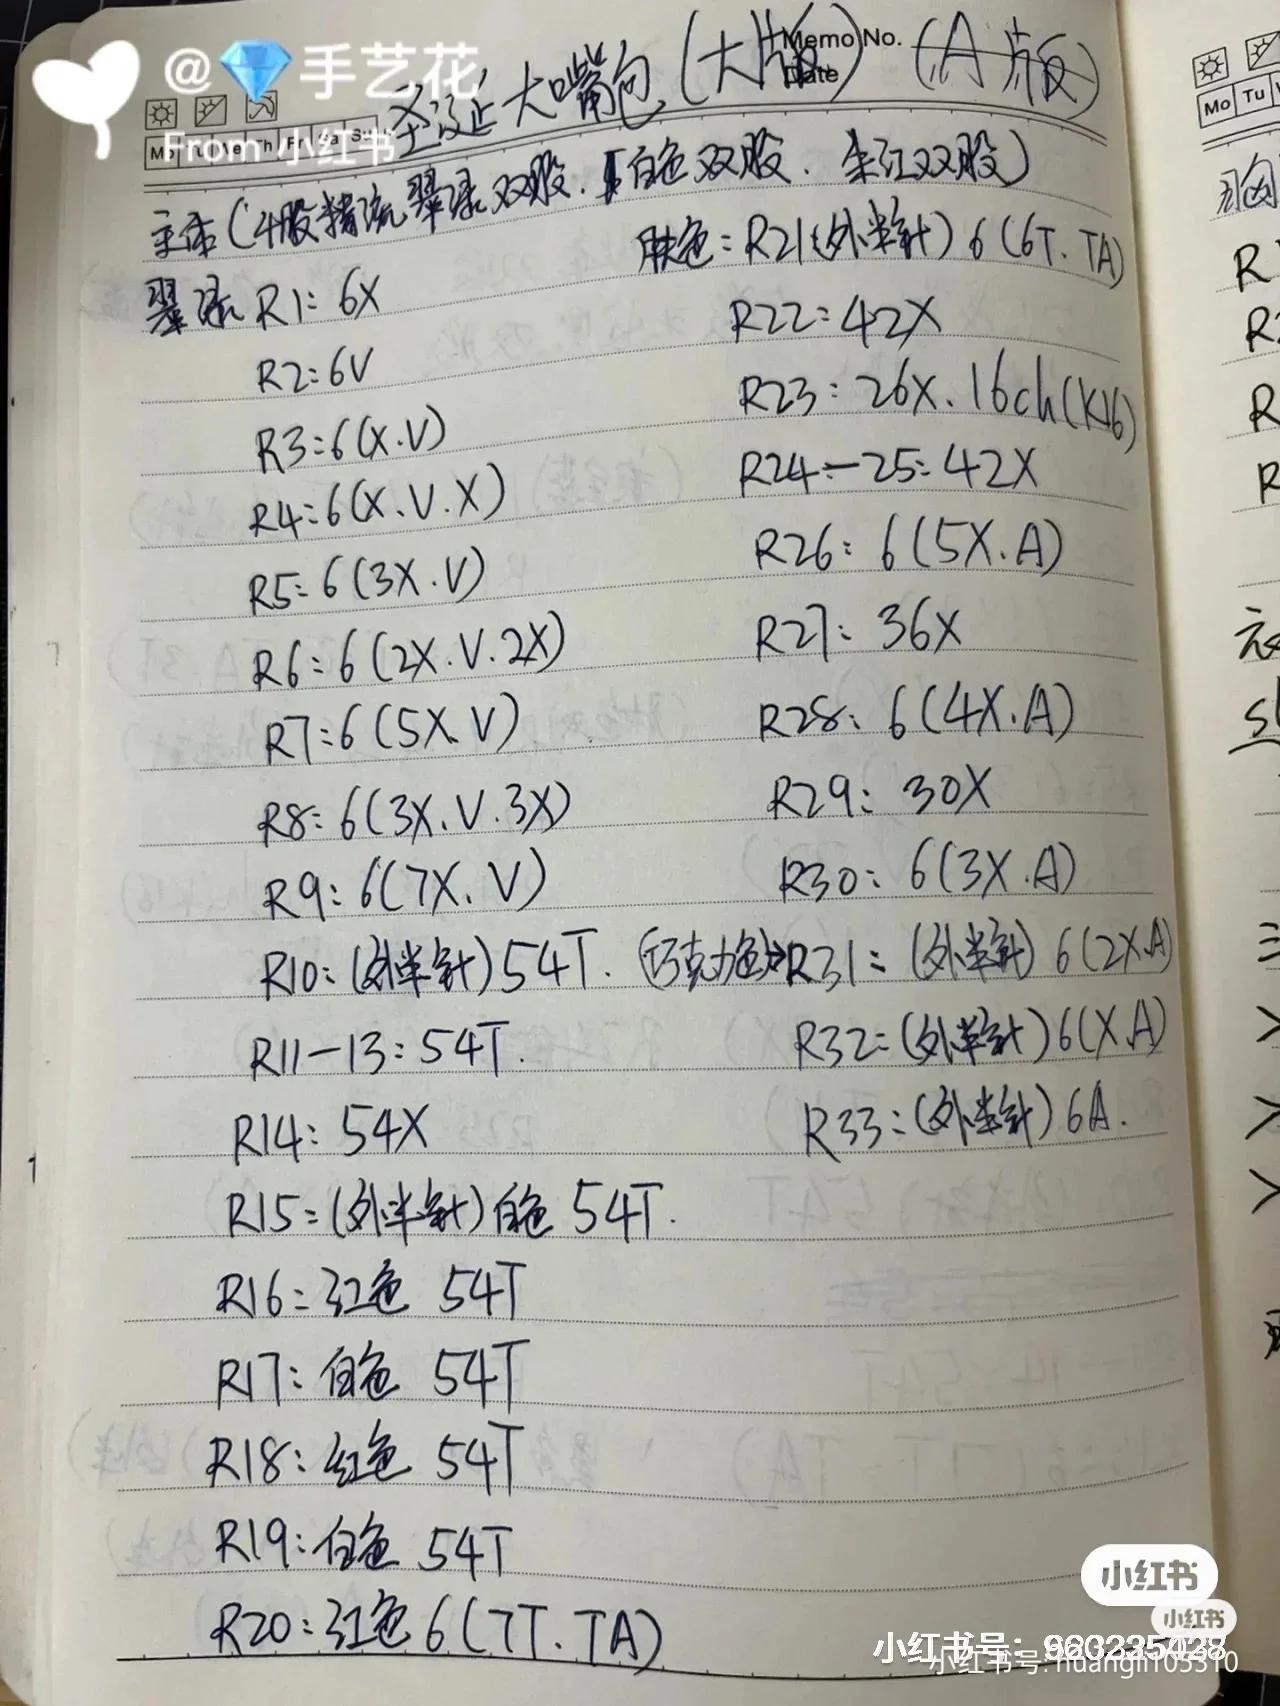 @💎手艺花
From 小红书
Memo No.
Date
Mo Tu We Th Fr Sa Su
圣诞大嘴包(大版) (A版)
主体(4股精流翠绿双股.白色双股.朱红双股)
翠绿 R1:6X
R2:6V
R3:6(X.V)
R4:6(X.V.X)
R5:6(3X.V)
R6:6(2X.V.2X)
R7:6(5X.V)
R8:6(3X.V.3X)
R9:6(7X.V)
R10:(外半针)54T.
R11-13:54T.
R14:54X
R15:(外半针)白色 54T.
R16:红色 54T
R17:白色 54T
R18:红色 54T
R19:白色 54T
R20:红色 6(7T.TA)
肤色:R21(外半针) 6(6T.TA)
R22:42X
R23:26X.16ch(K16)
R24-25:42X
R26:6(5X.A)
R27:36X
R28:6(4X.A)
R29:30X
R30:6(3X.A)
(巧克力色)R31:(外半针) 6(2X.A)
R32:(外半针)6(X.A)
R33:(外半针)6A.
Mo Tu
小红书
小红书
小红书号:960235028
小红书号:huangli105310